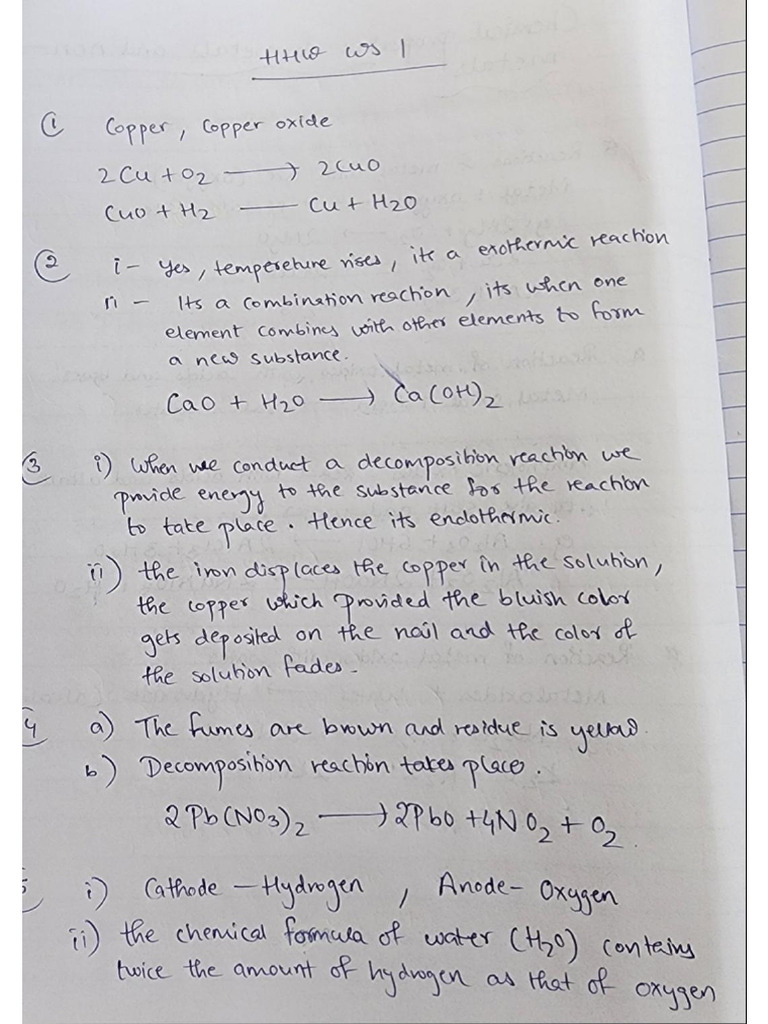 HHW WS 1
① Copper, Copper oxide
2Cu + O2 ⟶ 2CuO
CuO + H2 — Cu + H2O
② i- Yes, tempereture rises, its a exothermic reaction
ii - Its a combination reaction, its when one
element combines with other elements to form
a new substance.
CaO + H2O ⟶ Ca(OH)2
③ i) When we conduct a decomposition reaction we
provide energy to the substance for the reaction
to take place. Hence its endothermic.
ii) the iron displaces the copper in the solution,
the copper which provided the bluish color
gets deposited on the nail and the color of
the solution fades-
4 a) The fumes are brown and residue is yellow.
b) Decomposition reaction takes place.
2Pb(NO3)2 ⟶ 2PbO + 4NO2 + O2.
5 i) Cathode - Hydrogen, Anode- Oxygen
ii) the chemical formula of water (H2O) contains
twice the amount of hydrogen as that of oxygen